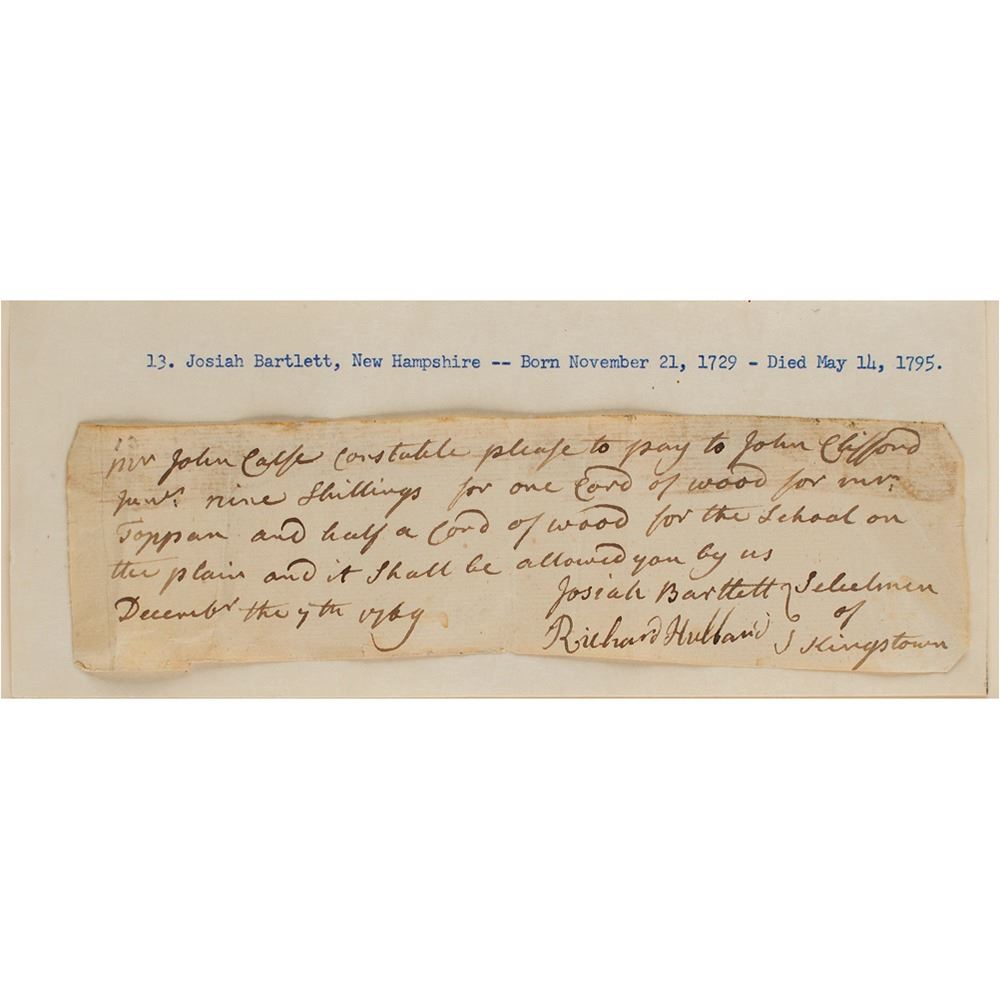 13. Josiah Bartlett, New Hampshire -- Born November 21, 1729 - Died May 14, 1795.
Mr John Calfe Constable please to pay to John Clifford
Junr. nine Shillings for one Cord of wood for mr.
Toppan and half a Cord of wood for the School on
the plain and it Shall be allowed you by us
Decembr the 7th 1769
Josiah Bartlett
Richard Hubbard
Selectmen
of
Kingstown